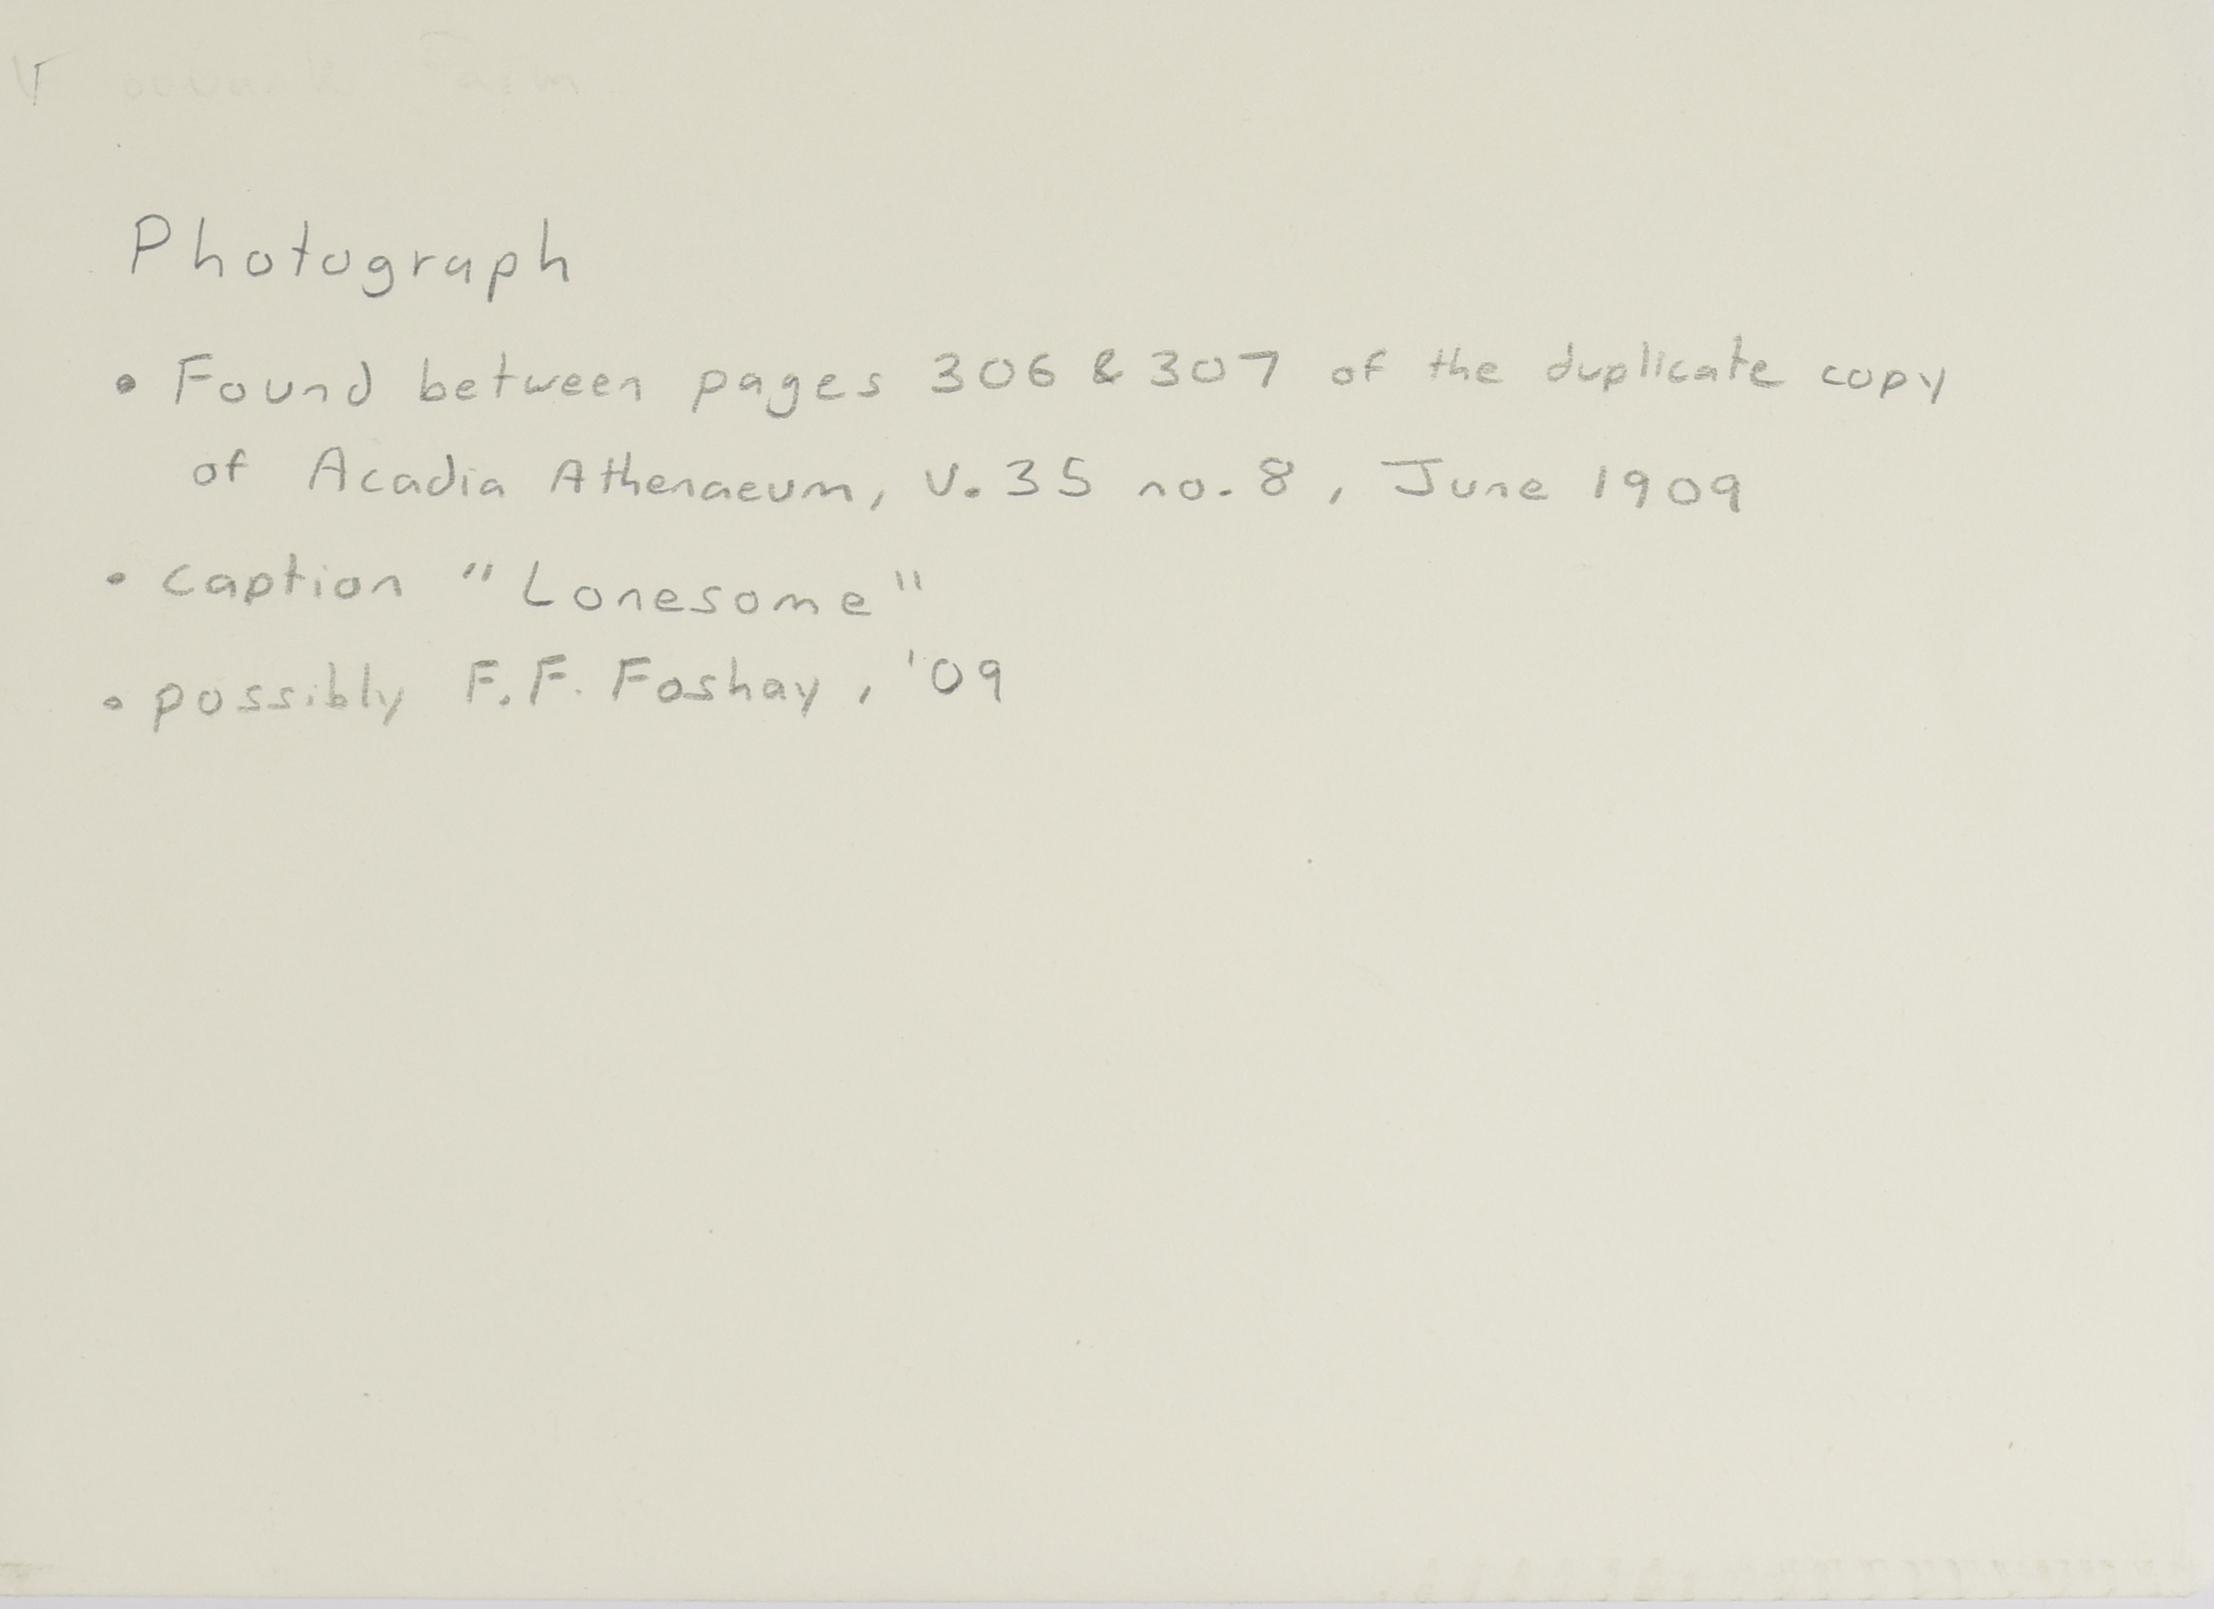 Farm
Photograph
• Found between pages 306 & 307 of the duplicate copy
of Acadia Athenaeum, v. 35 no. 8, June 1909
• caption "Lonesome"
• possibly F.F. Foshay, '09